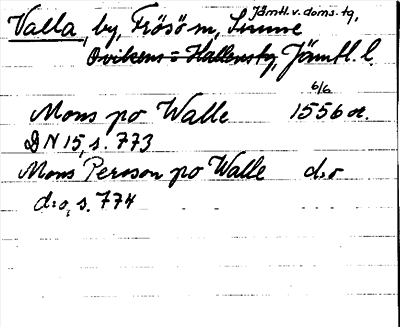 Jämtl. v. doms. tg,
Valla, by, Frösö sn, Sunne
Ovikens = Hallensty, Jämtl. l.
6/6
Mons po Walle 1556 or.
DN 15, s. 773
Mons Persson po Walle d:o
d:o, s. 774